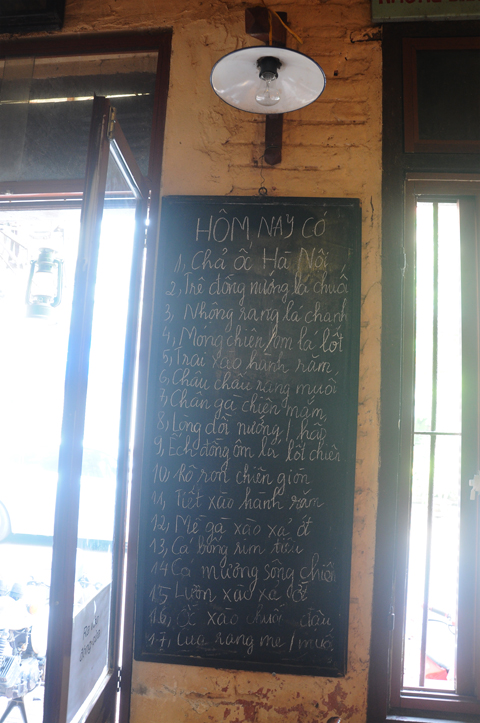 HÔM NAY CÓ
1, Chả ốc Hà Nội
2, Trê đồng nướng lá chuối
3, Nhộng rang lá chanh
4, Móng chiên/om lá lốt
5, Trai xào hành răm
6, Châu chấu rang muối
7, Chân gà chiên mắm
8, Lòng dồi nướng/hấp
9, Ếch đồng ôm lá lốt chiên
10, Rô ron chiên giòn
11, Tiết xào hành răm
12, Mề gà xào xả ớt
13, Cá bống rim tiêu
14 Cá mương sông chiên
15 Lươn xào xả ớt
16, Ốc xào chuối đậu
17, rang me/muối